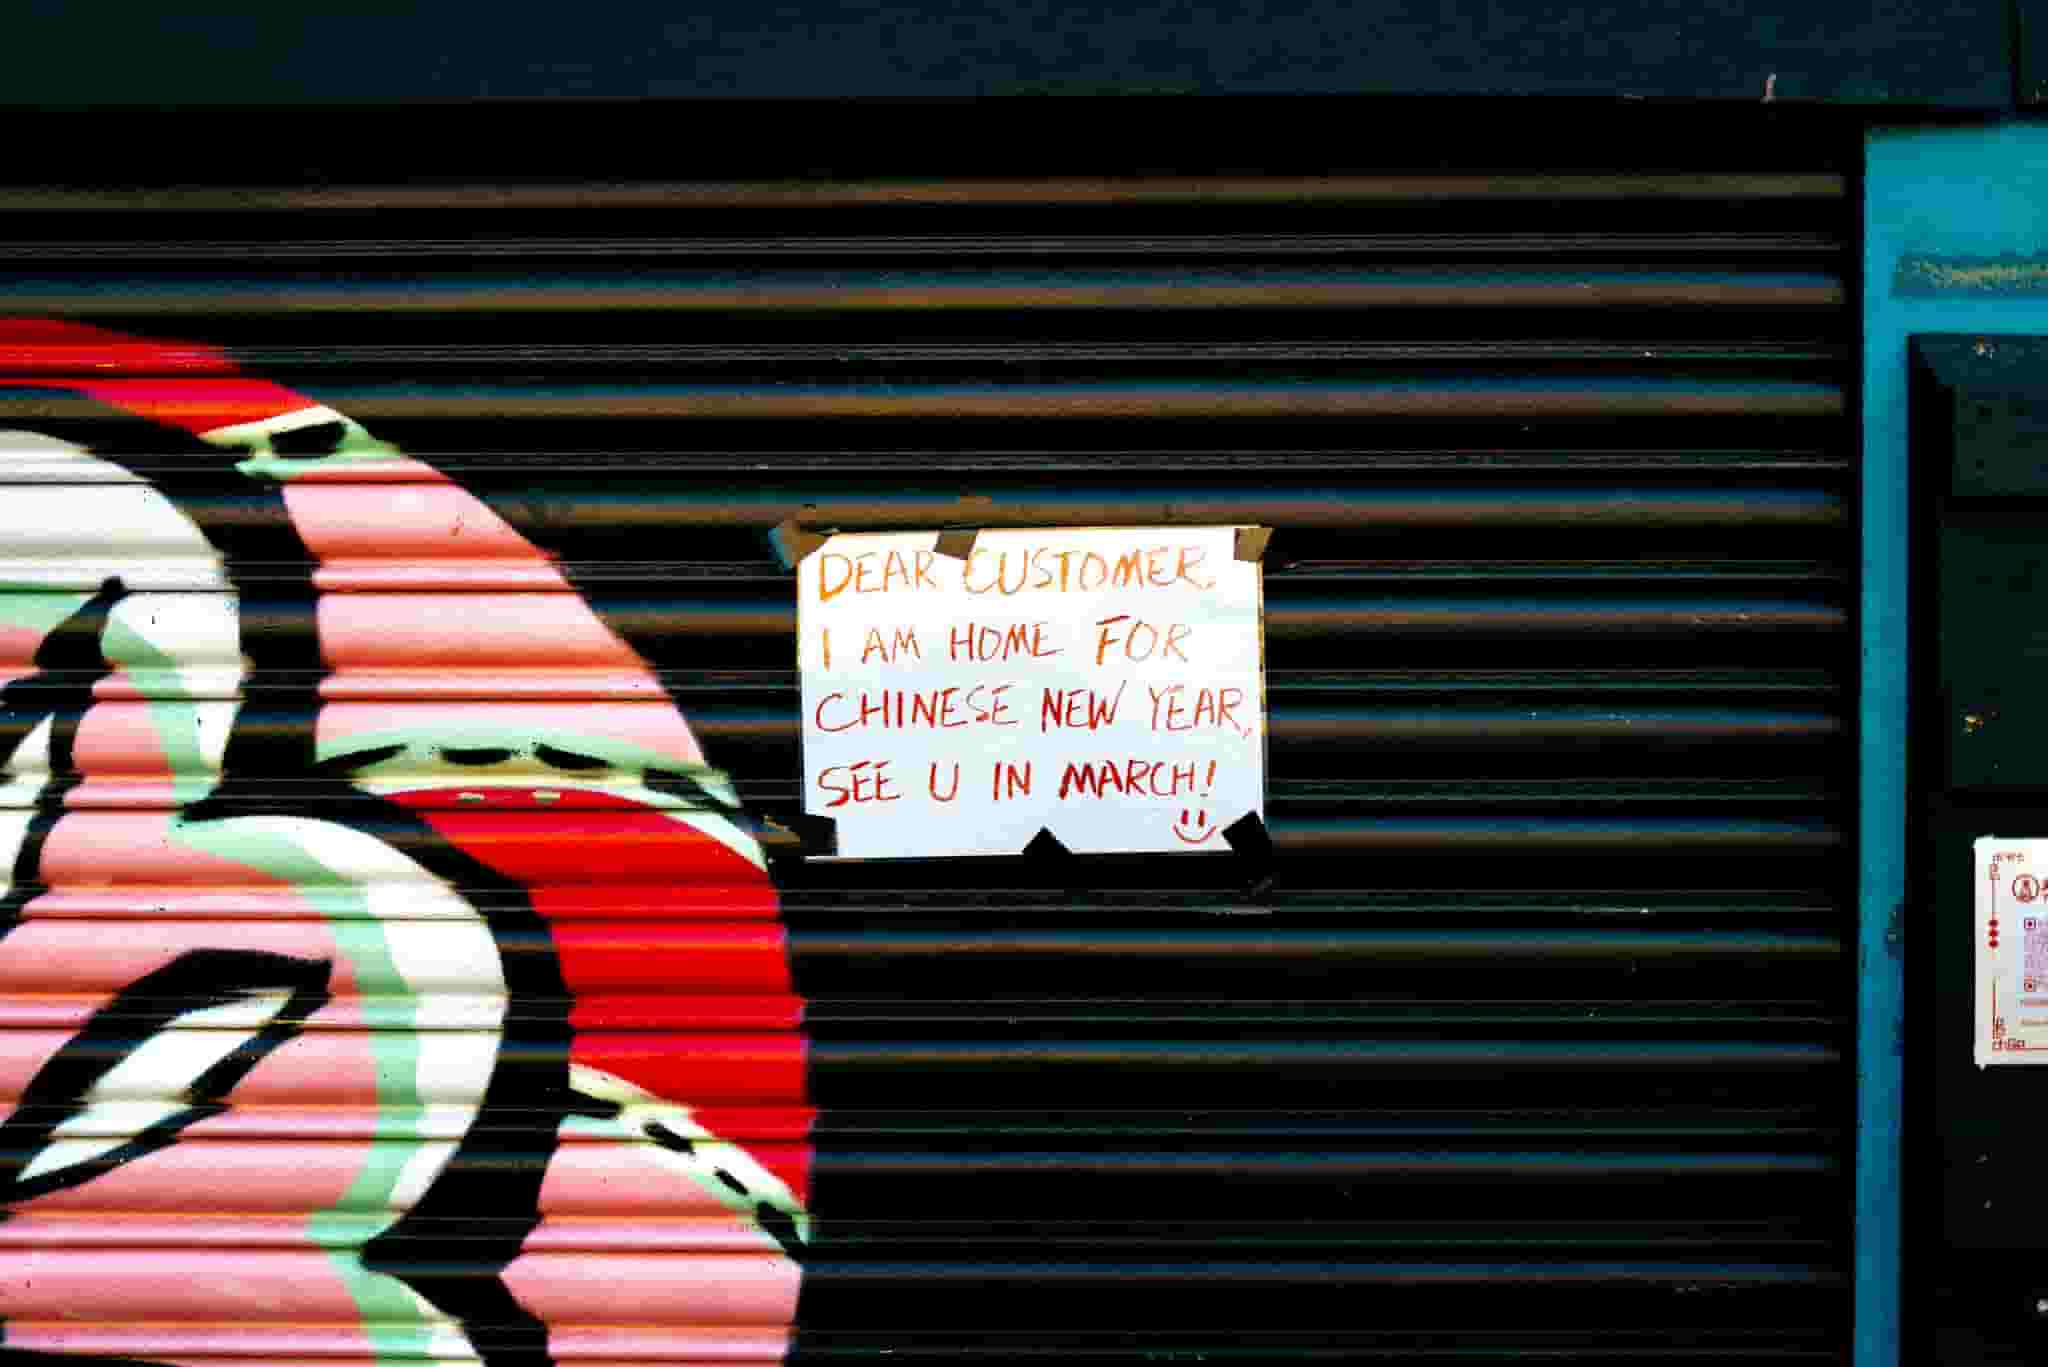 DEAR CUSTOMER,
I AM HOME FOR
CHINESE NEW YEAR,
SEE U IN MARCH!